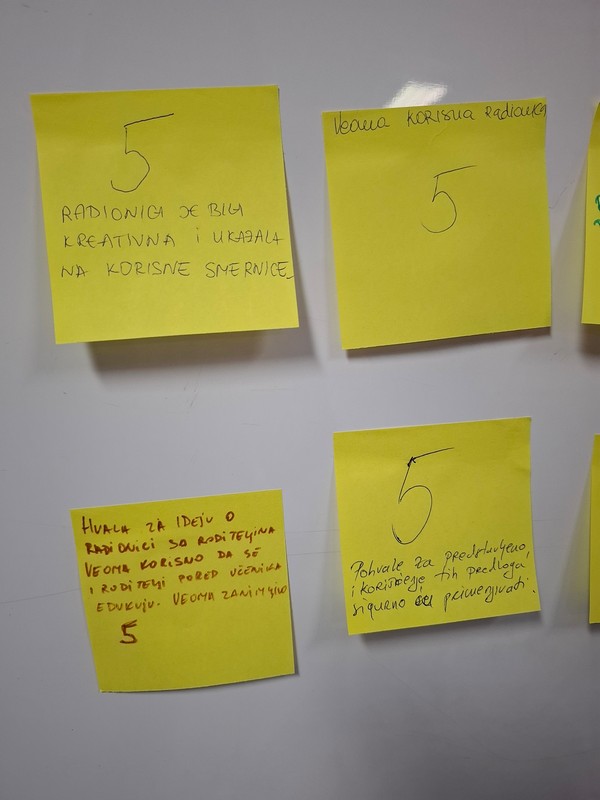 5
RADIONICA JE BILA
KREATIVNA I UKAZALA
NA KORISNE SMERNICE
Veoma KORISNA radionica
5
HVALA ZA IDEJU O
RADIONICI SA RODITELJIMA
VEOMA KORISNO DA SE
I RODITELJI PORED UČENIKA
EDUKUJU. VEOMA ZANIMLJIVO
5
5
Pohvale za predstavljeno,
i korišćenje tih predloga,
sigurno ću primenjivati.